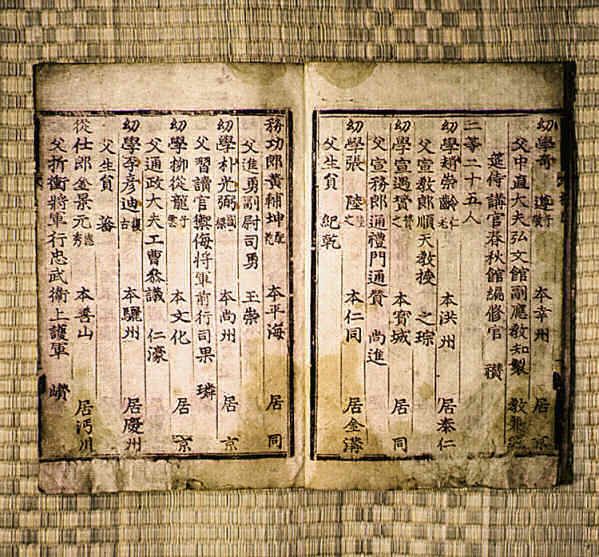 幼學奇 遵子敬 本幸州 居京
父中直大夫弘文館副應敎知製敎兼經
筵侍講官春秋館編修官 禶
二等二十五人
幼學趙崇齡仁老 本洪州 居泰仁
父宣敎郎順天敎授 之琮
幼學宣遇贇之 本寶城 居京
父宣務郎通禮門通贊 尚進
幼學張 陸之 本仁同 居金溝
父生貟 紀乾
務功郎黃輔坤 本平海 居同
父進勇副尉司勇 王崇
幼學朴光弼 本尚州 居京
父習讀官禦侮將軍前行司果 璘
幼學柳從龍子雲 本文化 居京
父通政大夫工曹叅議 仁濠
幼學李彥迪復古 本驪州 居慶州
父生貟 蕃
從仕郎金景元秀 本善山 居沔川
父折衝將軍行忠武衛上護軍 巑